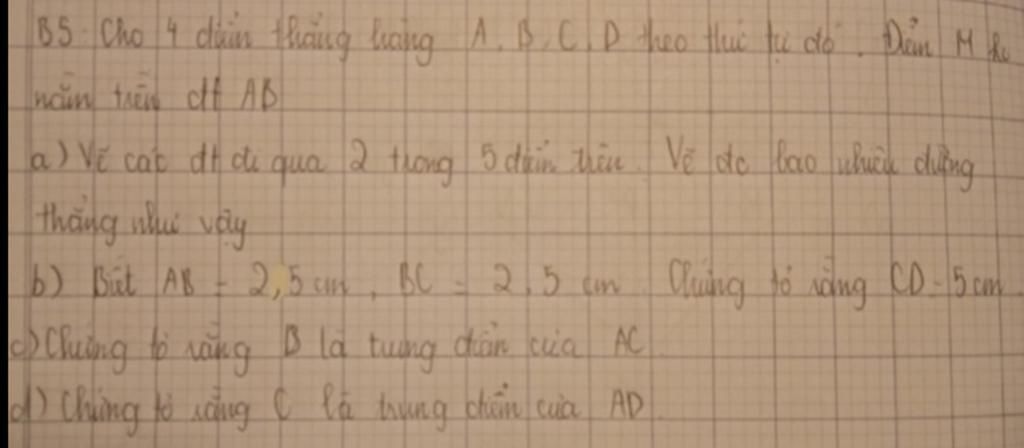 B5: Cho 4 điểm thẳng hàng A, B, C, D theo thứ tự đó. Điểm M ko
nằm trên đt AB
a) Vẽ các đt đi qua 2 trong 5 điểm trên. Vẽ đc bao nhiêu đường
thẳng như vậy
b) Biết AB = 2,5 cm, BC = 2,5 cm. Chứng tỏ rằng CD = 5 cm.
c) Chứng tỏ rằng B là trung điểm của AC
d) Chứng tỏ rằng C là trung điểm của AD